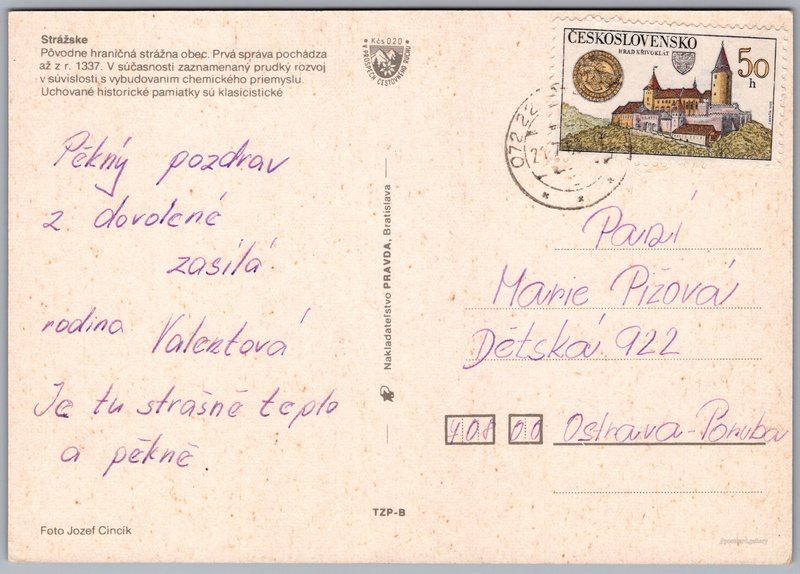 Strážske
Pôvodne hraničná strážna obec. Prvá správa pochádza
až z r. 1337. V súčasnosti zaznamenaný prudký rozvoj
v súvislosti s vybudovaním chemického priemyslu.
Uchované historické pamiatky sú klasicistické
Kčs 0,20
V PROSPECH CESTOVNÉHO RUCHU
ČESKOSLOVENSKO
HRAD KŘIVOKLÁT
50
h
072 22
21.7
Pěkný pozdrav
z dovolené
zasílá
rodina Valentová
Je tu strašně teplo
a pěkně.
Nakladateľstvo PRAVDA, Bratislava
Paní
Marie Pížová
Dětská 922
708 00 Ostrava-Poruba
TZP-B
Foto Jozef Cincík